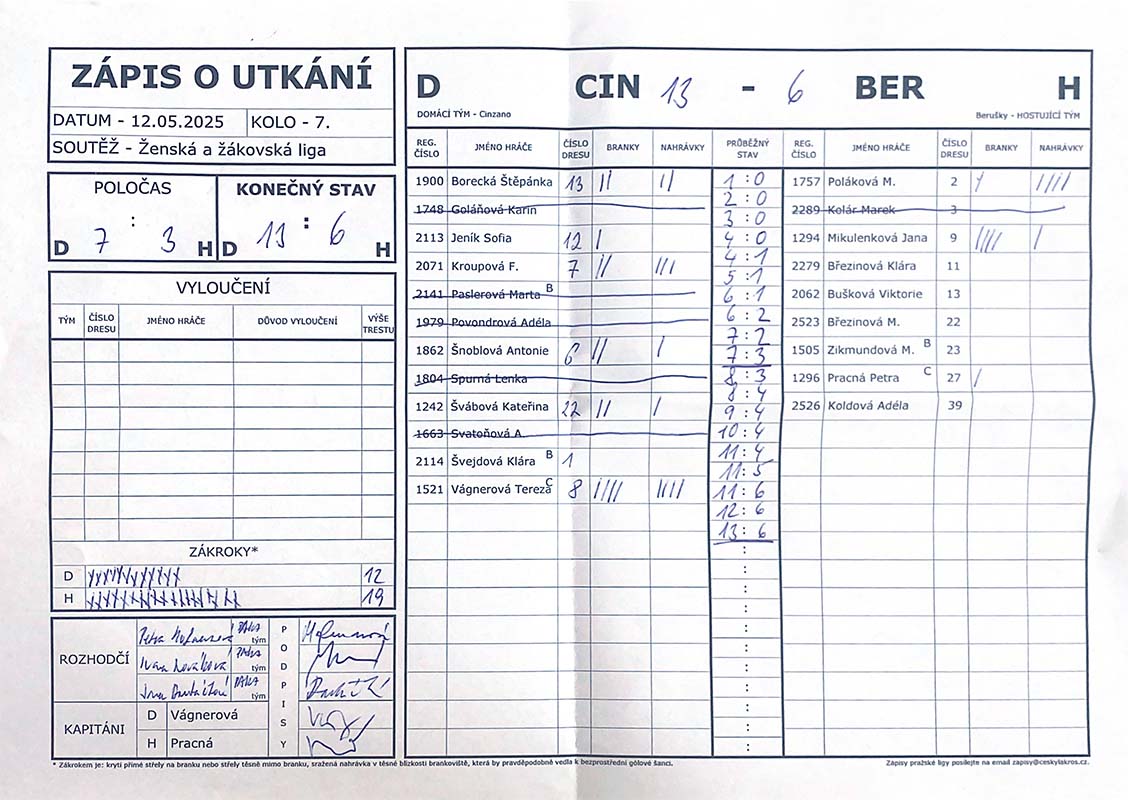 ZÁPIS O UTKÁNÍ
DATUM - 12.05.2025 KOLO - 7.
SOUTĚŽ - Ženská a žákovská liga
POLOČAS
D 7 : 3 H
KONEČNÝ STAV
D 13 : 6 H
VYLOUČENÍ
TÝM ČÍSLO DRESU JMÉNO HRÁČE DŮVOD VYLOUČENÍ VÝŠE TRESTU
ZÁKROKY*
D 12
H 19
ROZHODČÍ
Petra tým
Ivana Nováková tým
tým
PODPISY
KAPITÁNI
D Vágnerová
H Pracná
D CIN 13 - 6 BER H
DOMÁCÍ TÝM - Cinzano Berušky - HOSTUJÍCÍ TÝM
REG. ČÍSLO JMÉNO HRÁČE ČÍSLO DRESU BRANKY NAHRÁVKY PRŮBĚŽNÝ STAV REG. ČÍSLO JMÉNO HRÁČE ČÍSLO DRESU BRANKY NAHRÁVKY
1900 Borecká Štěpánka 13 || ||
1748 Goláňová Karin
2113 Jeník Sofia 12 |
2071 Kroupová F. 7 || |||
2141 Paslerová Marta B
1979 Povondrová Adéla
1862 Šnoblová Antonie 6 || |
1804 Spurná Lenka
1242 Švábová Kateřina 22 || |
1663 Svatoňová A.
2114 Švejdová Klára B 1
1521 Vágnerová Tereza C 8 |||| ||||
1 : 0
2 : 0
3 : 0
4 : 0
4 : 1
5 : 1
6 : 1
6 : 2
7 : 2
7 : 3
8 : 3
8 : 4
9 : 4
10 : 4
11 : 4
11 : 5
11 : 6
12 : 6
13 : 6
:
:
:
:
:
:
:
:
:
:
:
1757 Poláková M. 2 | ||||
2289 Kolár Marek 3
1294 Mikulenková Jana 9 |||| |
2279 Březinová Klára 11
2062 Bušková Viktorie 13
2523 Březinová M. 22
1505 Zikmundová M. B 23
1296 Pracná Petra C 27 |
2526 Koldová Adéla 39
* Zákrokem je: krytí přímé střely na branku nebo střely těsně mimo branku, sražená nahrávka v těsné blízkosti brankoviště, která by pravděpodobně vedla k bezprostřední gólové šanci.
Zápisy pražské ligy posílejte na email zapisy@ceskylakros.cz.